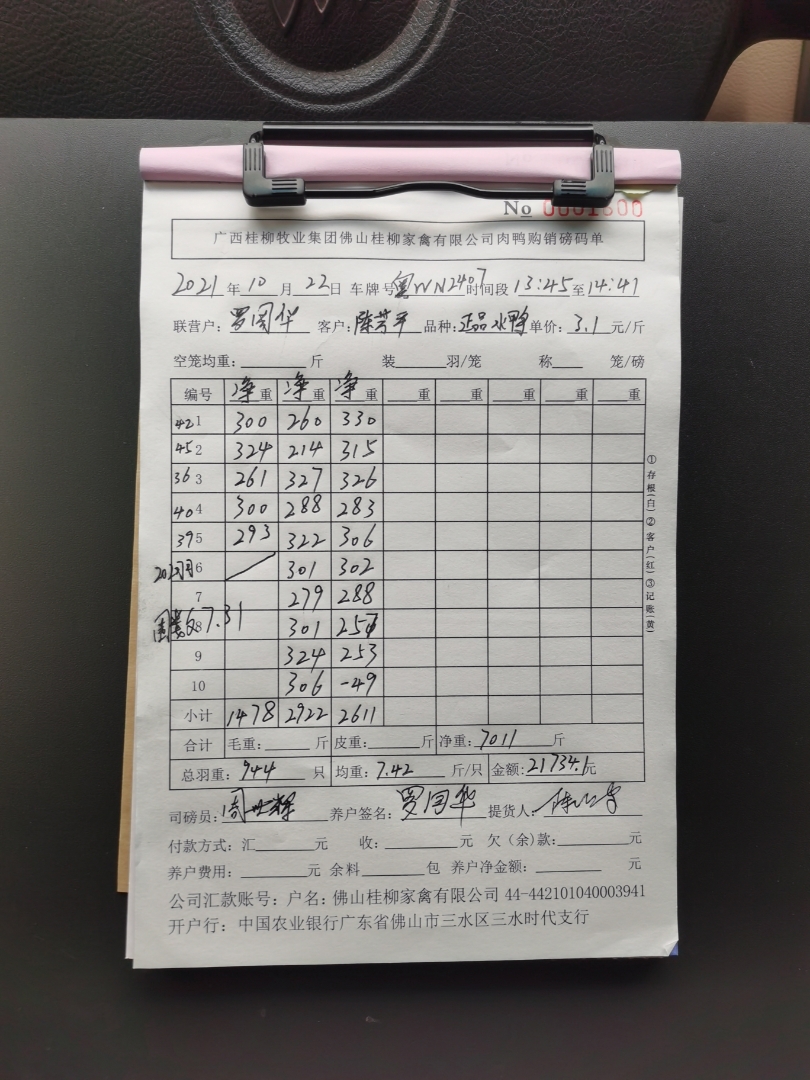 No 0001800
广西桂柳牧业集团佛山桂柳家禽有限公司肉鸭购销磅码单
2021年10月22日 车牌号粤WN2407时间段13:45至14:41
联营户:罗国华 客户:陈芳平 品种:正品水鸭 单价:3.1元/斤
空笼均重:____斤 装____羽/笼 称____笼/磅
编号 净重 净重 净重 重 重 重 重 重
42 1 300 260 330
45 2 324 214 315
36 3 261 327 326
40 4 300 288 283
39 5 293 322 306
6 301 302
7 279 288
8 7.31 301 257
9 324 253
10 306 -49
小计 1478 2922 2611
合计 毛重:____斤 皮重:____斤 净重:7011斤
总羽重:944只 均重:7.42斤/只 金额:21734.1元
司磅员:周世辉 养户签名:罗国华 提货人:
付款方式:汇____元 收:____元 欠(余)款:____元
养户费用:____元 余料____包 养户净金额:____元
公司汇款账号:户名:佛山桂柳家禽有限公司 44-442101040003941
开户行:中国农业银行广东省佛山市三水区三水时代支行
①存根(白)②客户(红)③记账(黄)